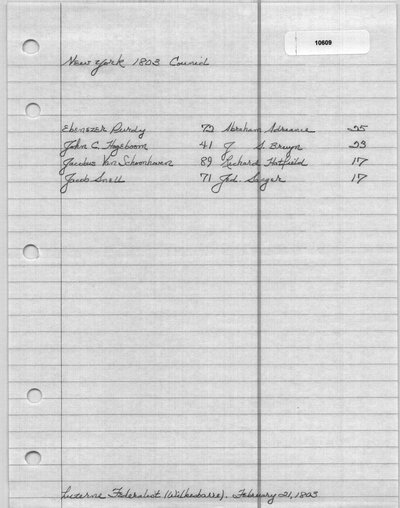 10609
New York 1803 Council
Ebenezer Purdy 72 Abraham Adriance 25
John C. Hogeboom 41 J S. Bruyn 23
Jacobus Van Schoonhoven 89 Richard Hatfield 17
Jacob Snell 71 Jed. Sanger 17
Luzerne Federalist (Wilkesbarre). February 21, 1803